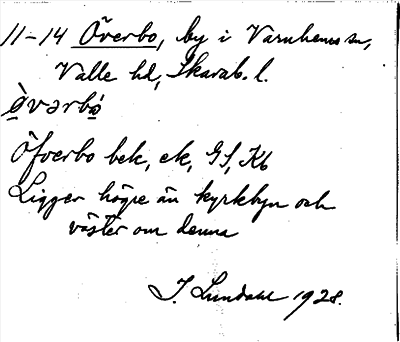 11-14 Överbo, by i Varnhems sn,
Valle hd, Skarab. l.
òvərbo
Öfverbo bek, ek, GS, Kb
Ligger högre än kyrkbyn och
väster om denna
J. Lundahl 1928.